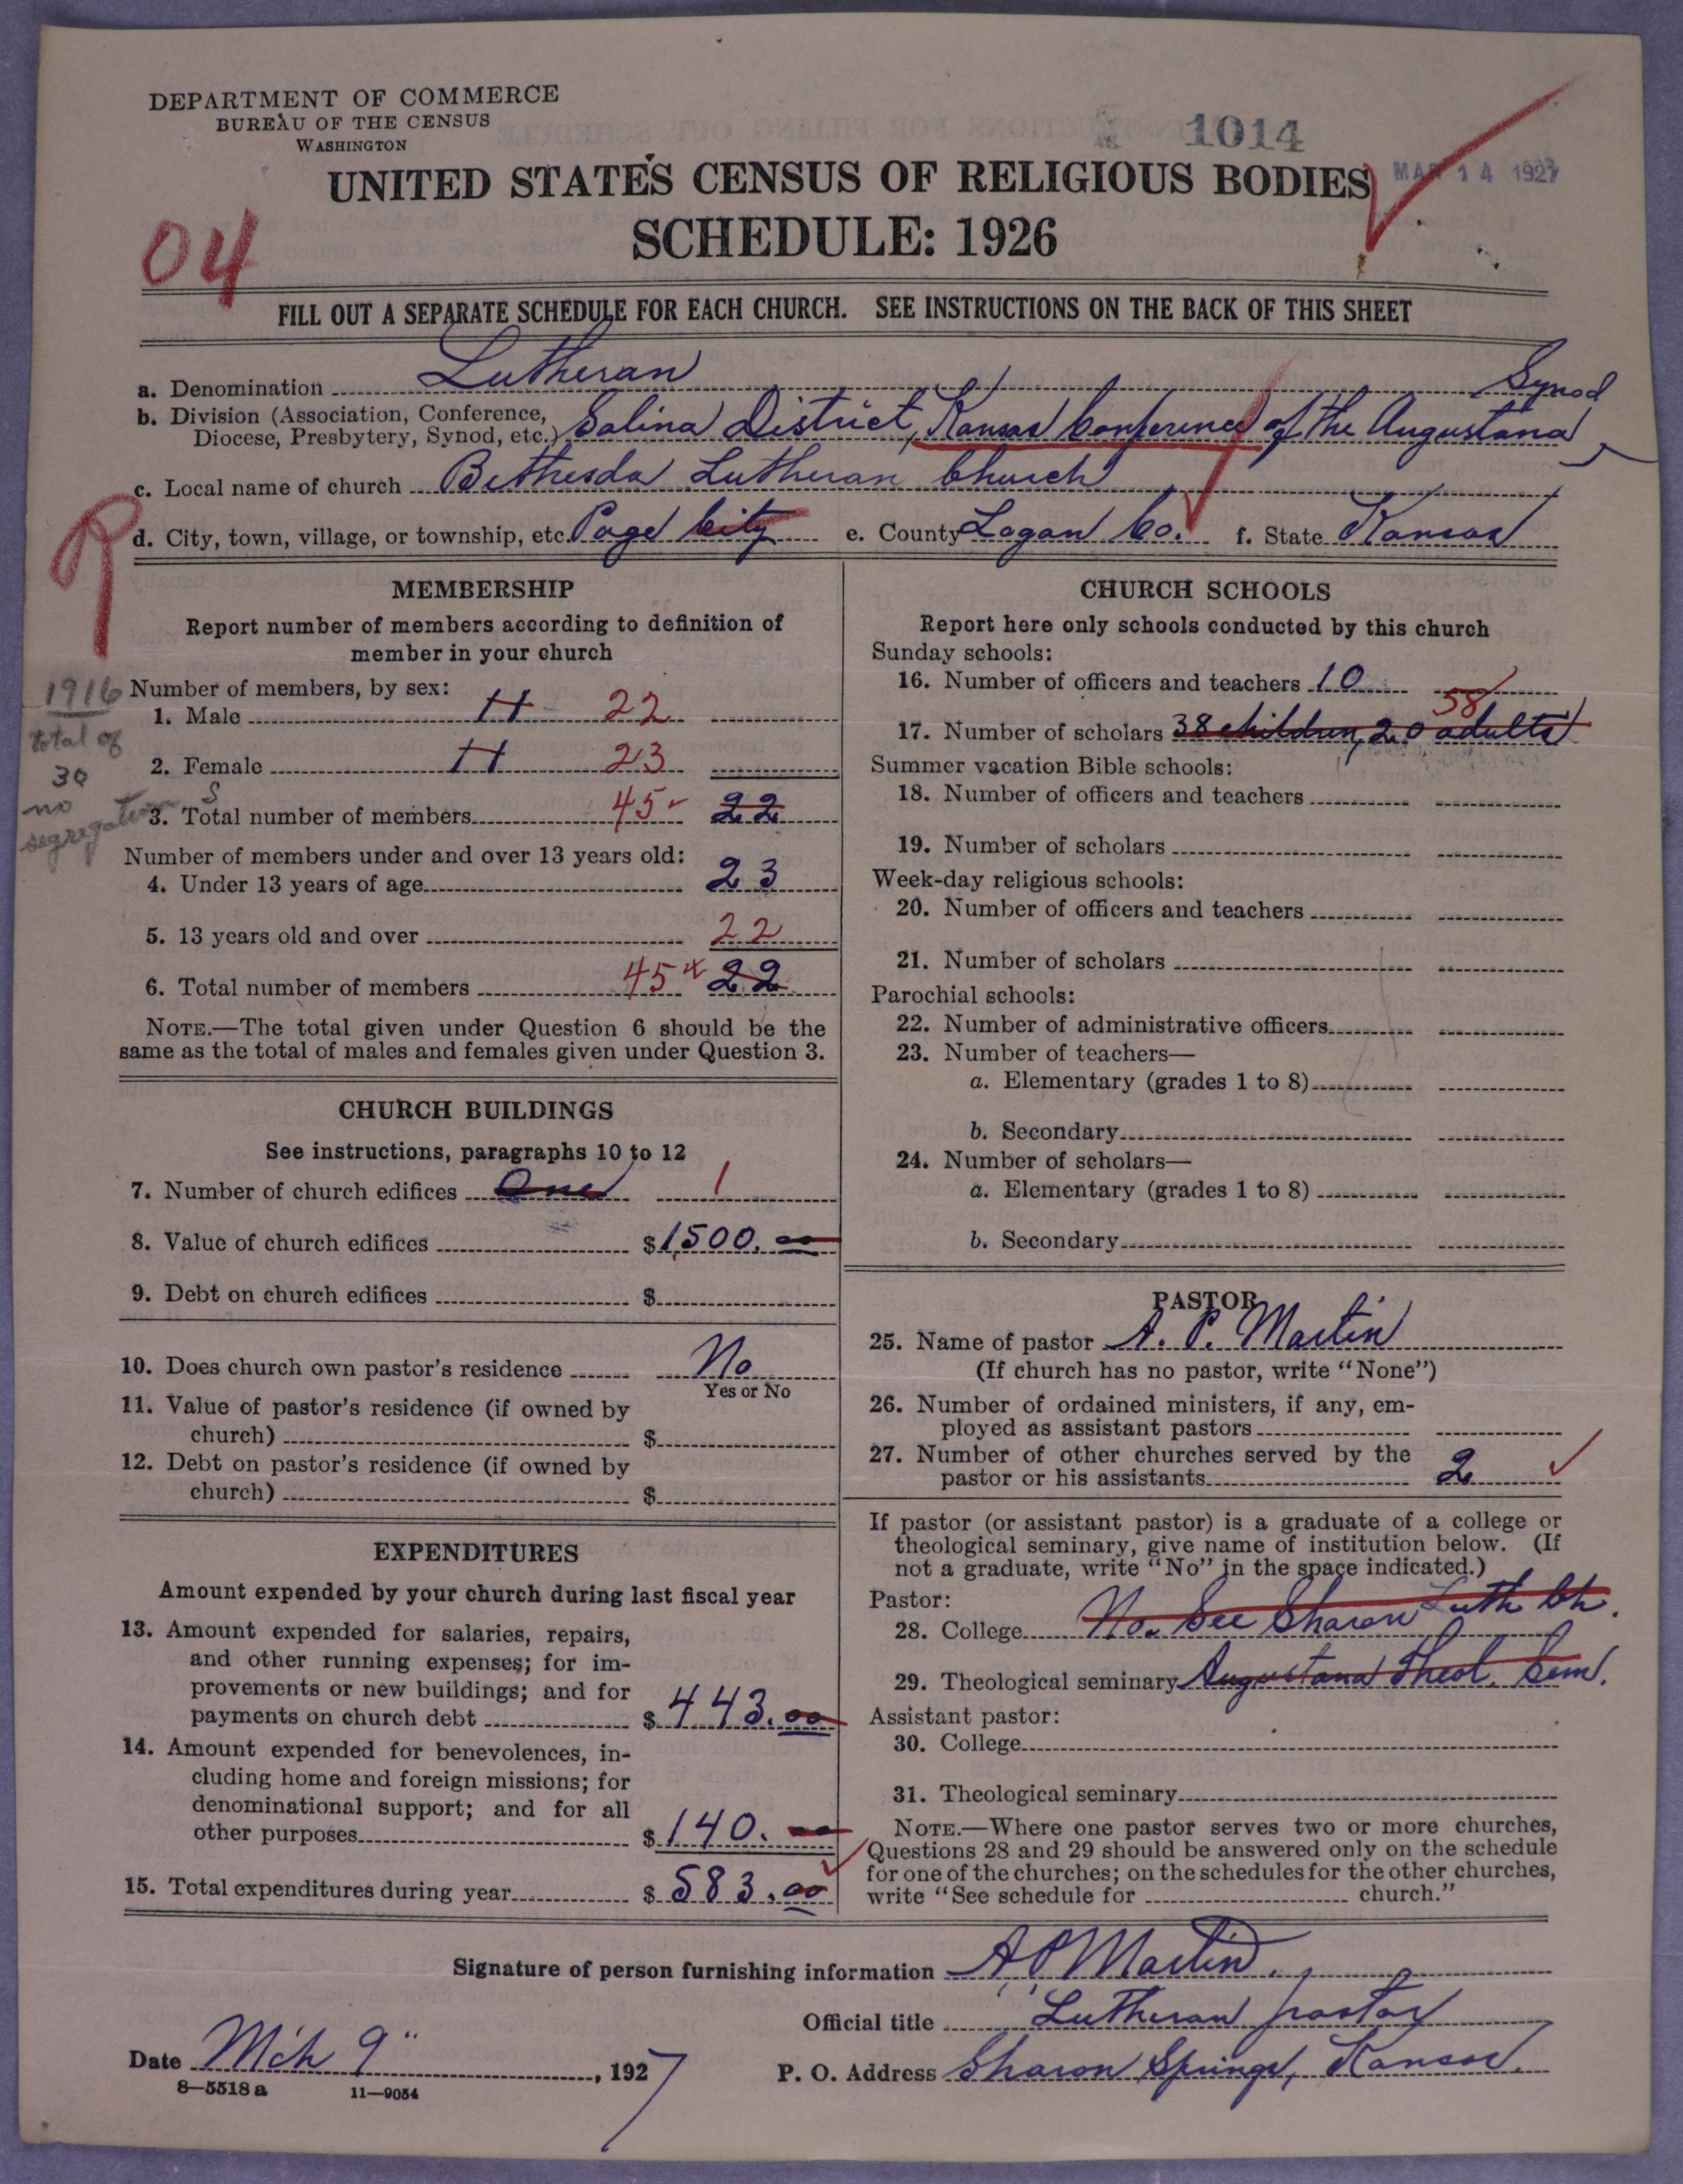 DEPARTMENT OF COMMERCE
BUREAU OF THE CENSUS
WASHINGTON
1014
UNITED STATES CENSUS OF RELIGIOUS BODIES
MAR 14 1927
SCHEDULE: 1926
04
FILL OUT A SEPARATE SCHEDULE FOR EACH CHURCH. SEE INSTRUCTIONS ON THE BACK OF THIS SHEET
a. Denomination Lutheran
Synod
b. Division (Association, Conference, Diocese, Presbytery, Synod, etc.) Salina District, Kansas Conference of the Augustana
c. Local name of church Bethesda Lutheran Church
d. City, town, village, or township, etc. Page City e. County Logan Co. f. State Kansas
R
MEMBERSHIP
Report number of members according to definition of
member in your church
1916
total of
30
no
segregation
Number of members, by sex:
1. Male 11 22
2. Female 11 23
3. Total number of members 45 22
Number of members under and over 13 years old:
4. Under 13 years of age 23
5. 13 years old and over 22
6. Total number of members 45 22
NOTE.—The total given under Question 6 should be the
same as the total of males and females given under Question 3.
CHURCH BUILDINGS
See instructions, paragraphs 10 to 12
7. Number of church edifices One 1
8. Value of church edifices $1500.00
9. Debt on church edifices $
10. Does church own pastor's residence No
Yes or No
11. Value of pastor's residence (if owned by
church) $
12. Debt on pastor's residence (if owned by
church) $
EXPENDITURES
Amount expended by your church during last fiscal year
13. Amount expended for salaries, repairs,
and other running expenses; for im-
provements or new buildings; and for
payments on church debt $443.00
14. Amount expended for benevolences, in-
cluding home and foreign missions; for
denominational support; and for all
other purposes $140.00
15. Total expenditures during year $583.00
CHURCH SCHOOLS
Report here only schools conducted by this church
Sunday schools:
16. Number of officers and teachers 10
58
17. Number of scholars 38 children, 20 adults
Summer vacation Bible schools:
18. Number of officers and teachers
19. Number of scholars
Week-day religious schools:
20. Number of officers and teachers
21. Number of scholars
Parochial schools:
22. Number of administrative officers
23. Number of teachers—
a. Elementary (grades 1 to 8)
b. Secondary
24. Number of scholars—
a. Elementary (grades 1 to 8)
b. Secondary
PASTOR
25. Name of pastor A. P. Martin
(If church has no pastor, write "None")
26. Number of ordained ministers, if any, em-
ployed as assistant pastors
27. Number of other churches served by the
pastor or his assistants 2
If pastor (or assistant pastor) is a graduate of a college or
theological seminary, give name of institution below. (If
not a graduate, write "No" in the space indicated.)
Pastor:
28. College No. See Sharon Luth Ch.
29. Theological seminary Augustana Theol. Sem.
Assistant pastor:
30. College
31. Theological seminary
NOTE.—Where one pastor serves two or more churches,
Questions 28 and 29 should be answered only on the schedule
for one of the churches; on the schedules for the other churches,
write "See schedule for church."
Signature of person furnishing information A P Martin
Official title Lutheran pastor
Date Mch 9", 1927 P. O. Address Sharon Springs, Kansas.
8—5518 a 11—9054